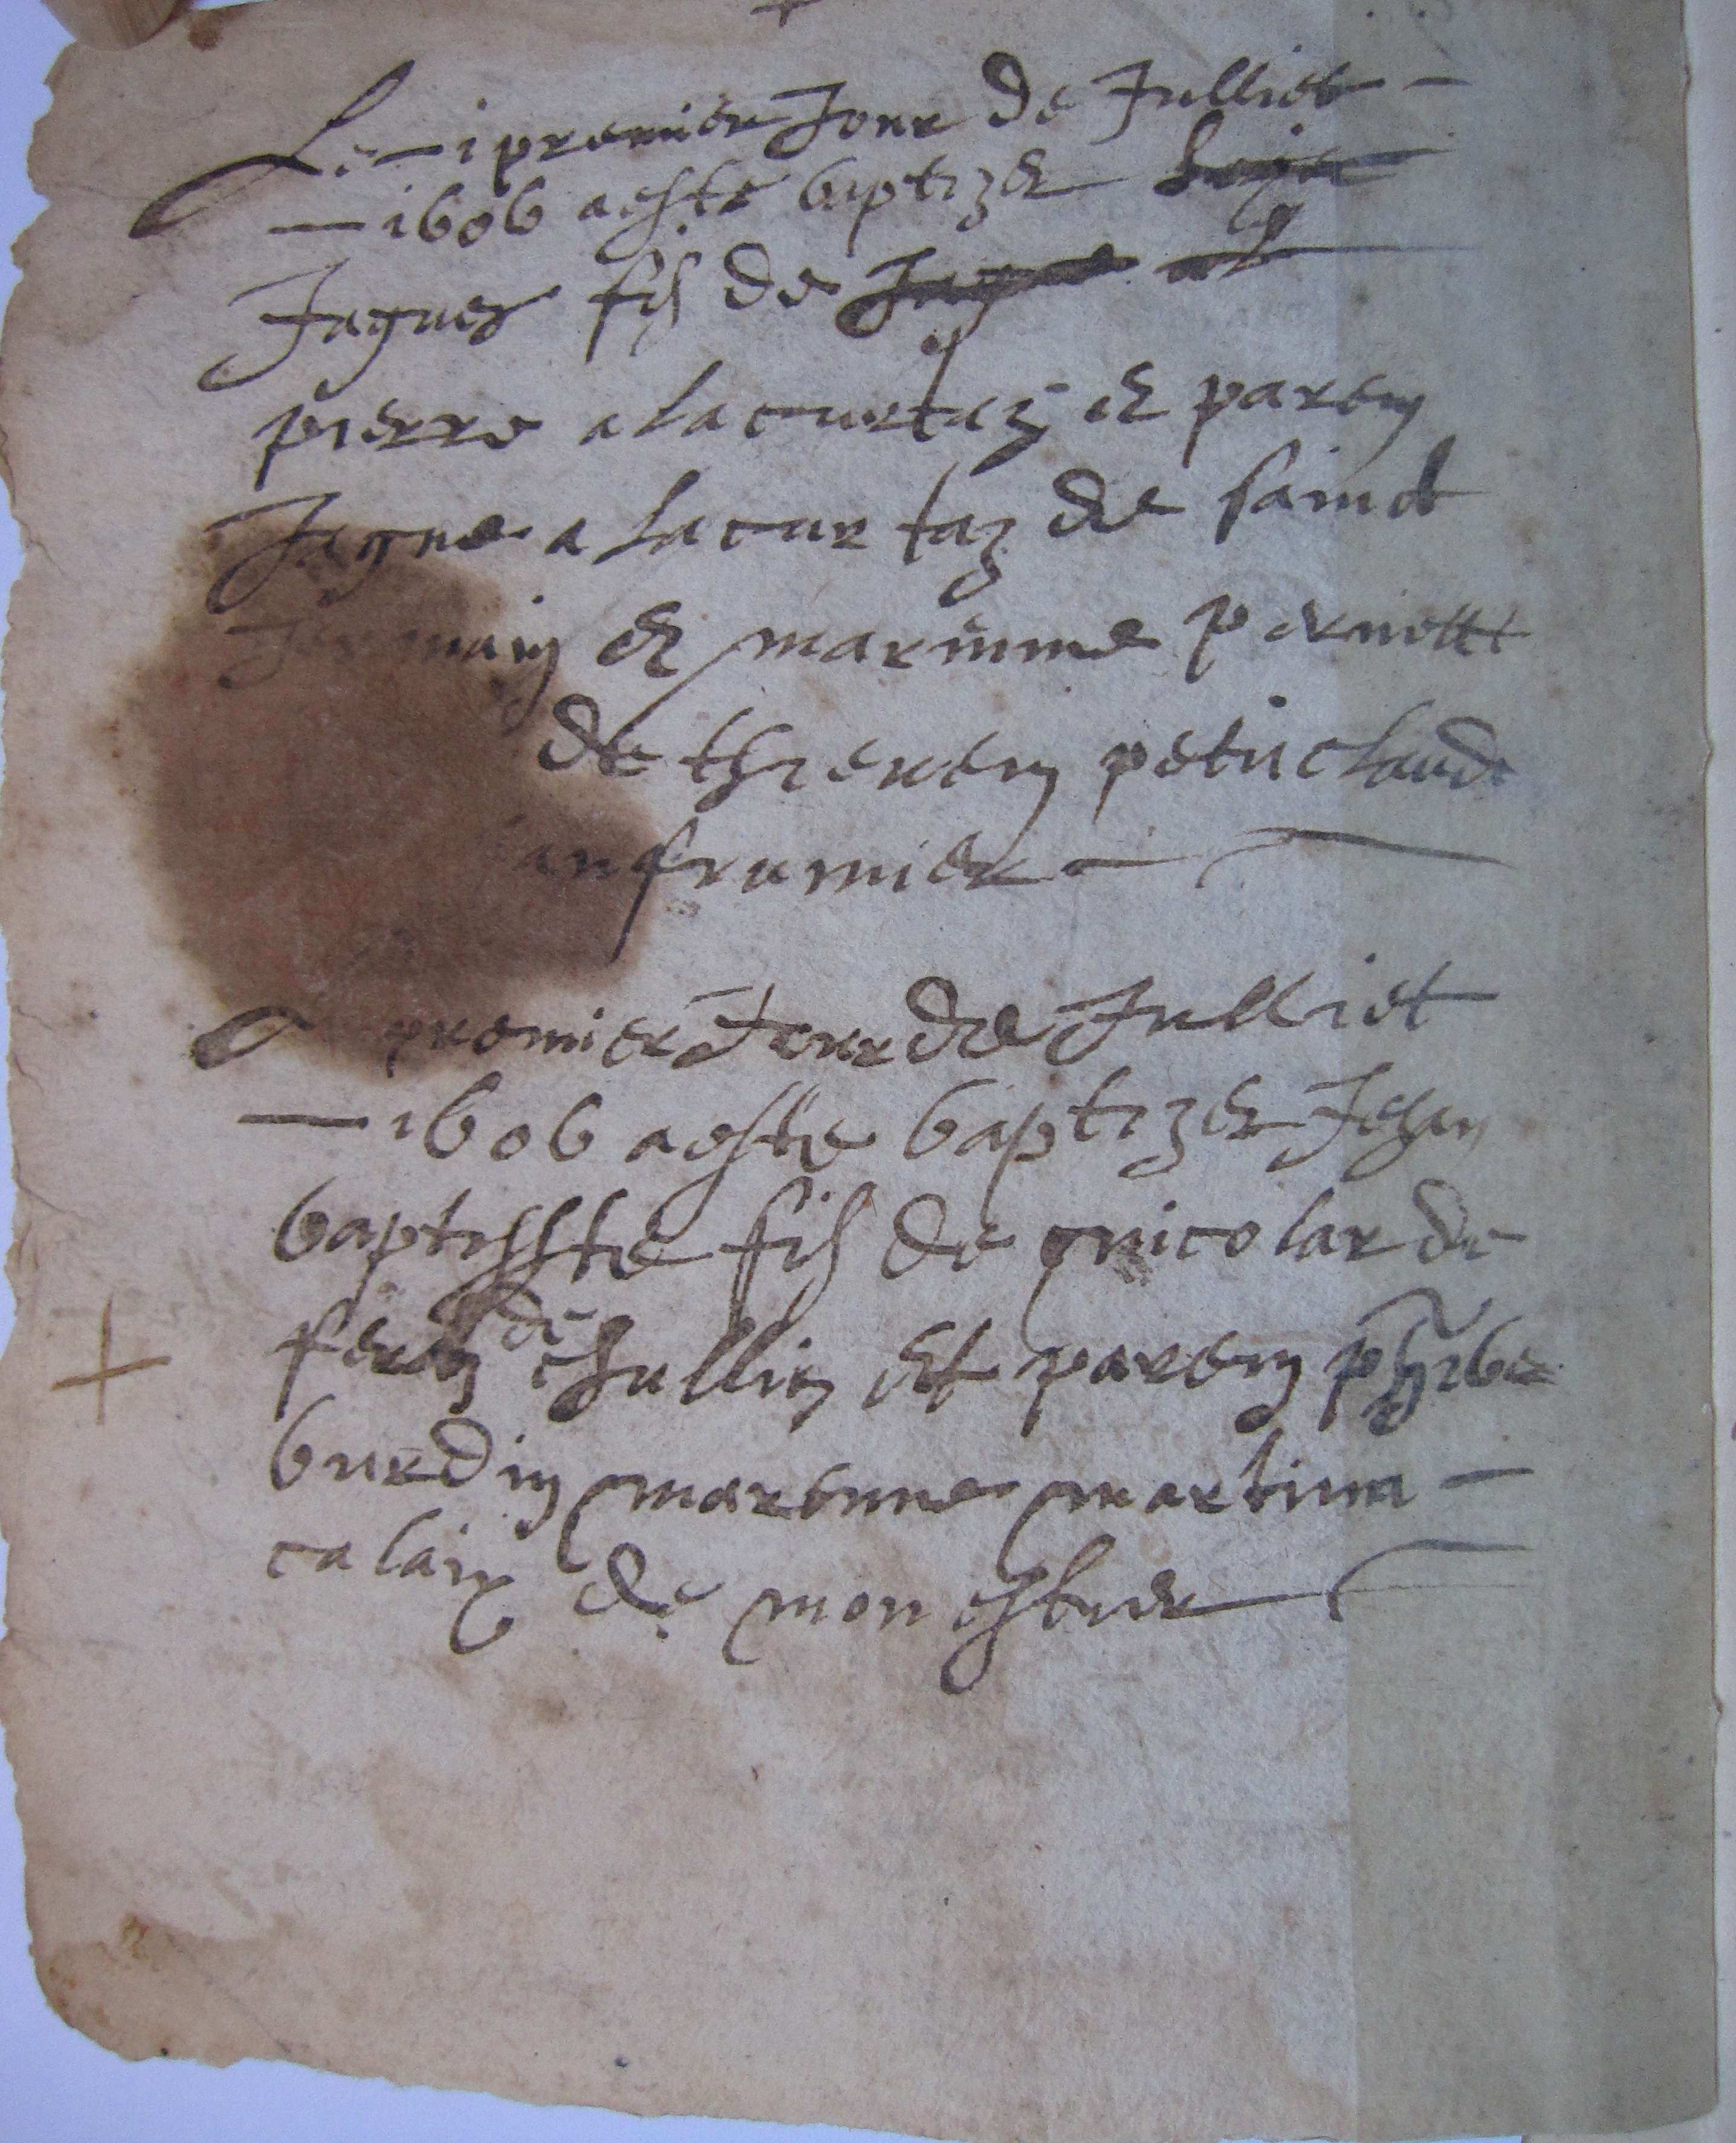 Le i premier Jour de Julliet
1606 a este baptizer
Jaques fis de
pierre alacurtaz et parein
Jaque alacurtaz de sainct
Jermain et marinne pernette
de thierein petit claude
anframier
premier Jour de Julliet
1606 a este baptizer Jehan
baptisste fis de nicolar de
de chullin et parein phibe
burdin marenne martina
calaix de monestier